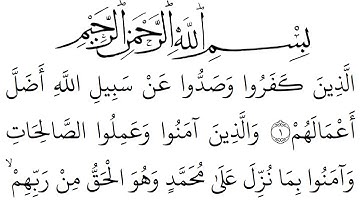 بِسْمِ اللَّهِ الرَّحْمَٰنِ الرَّحِيمِ
الَّذِينَ كَفَرُوا وَصَدُّوا عَنْ سَبِيلِ اللَّهِ أَضَلَّ
أَعْمَالَهُمْ ۝١ وَالَّذِينَ آمَنُوا وَعَمِلُوا الصَّالِحَاتِ
وَآمَنُوا بِمَا نُزِّلَ عَلَىٰ مُحَمَّدٍ وَهُوَ الْحَقُّ مِنْ رَبِّهِمْ ۙ